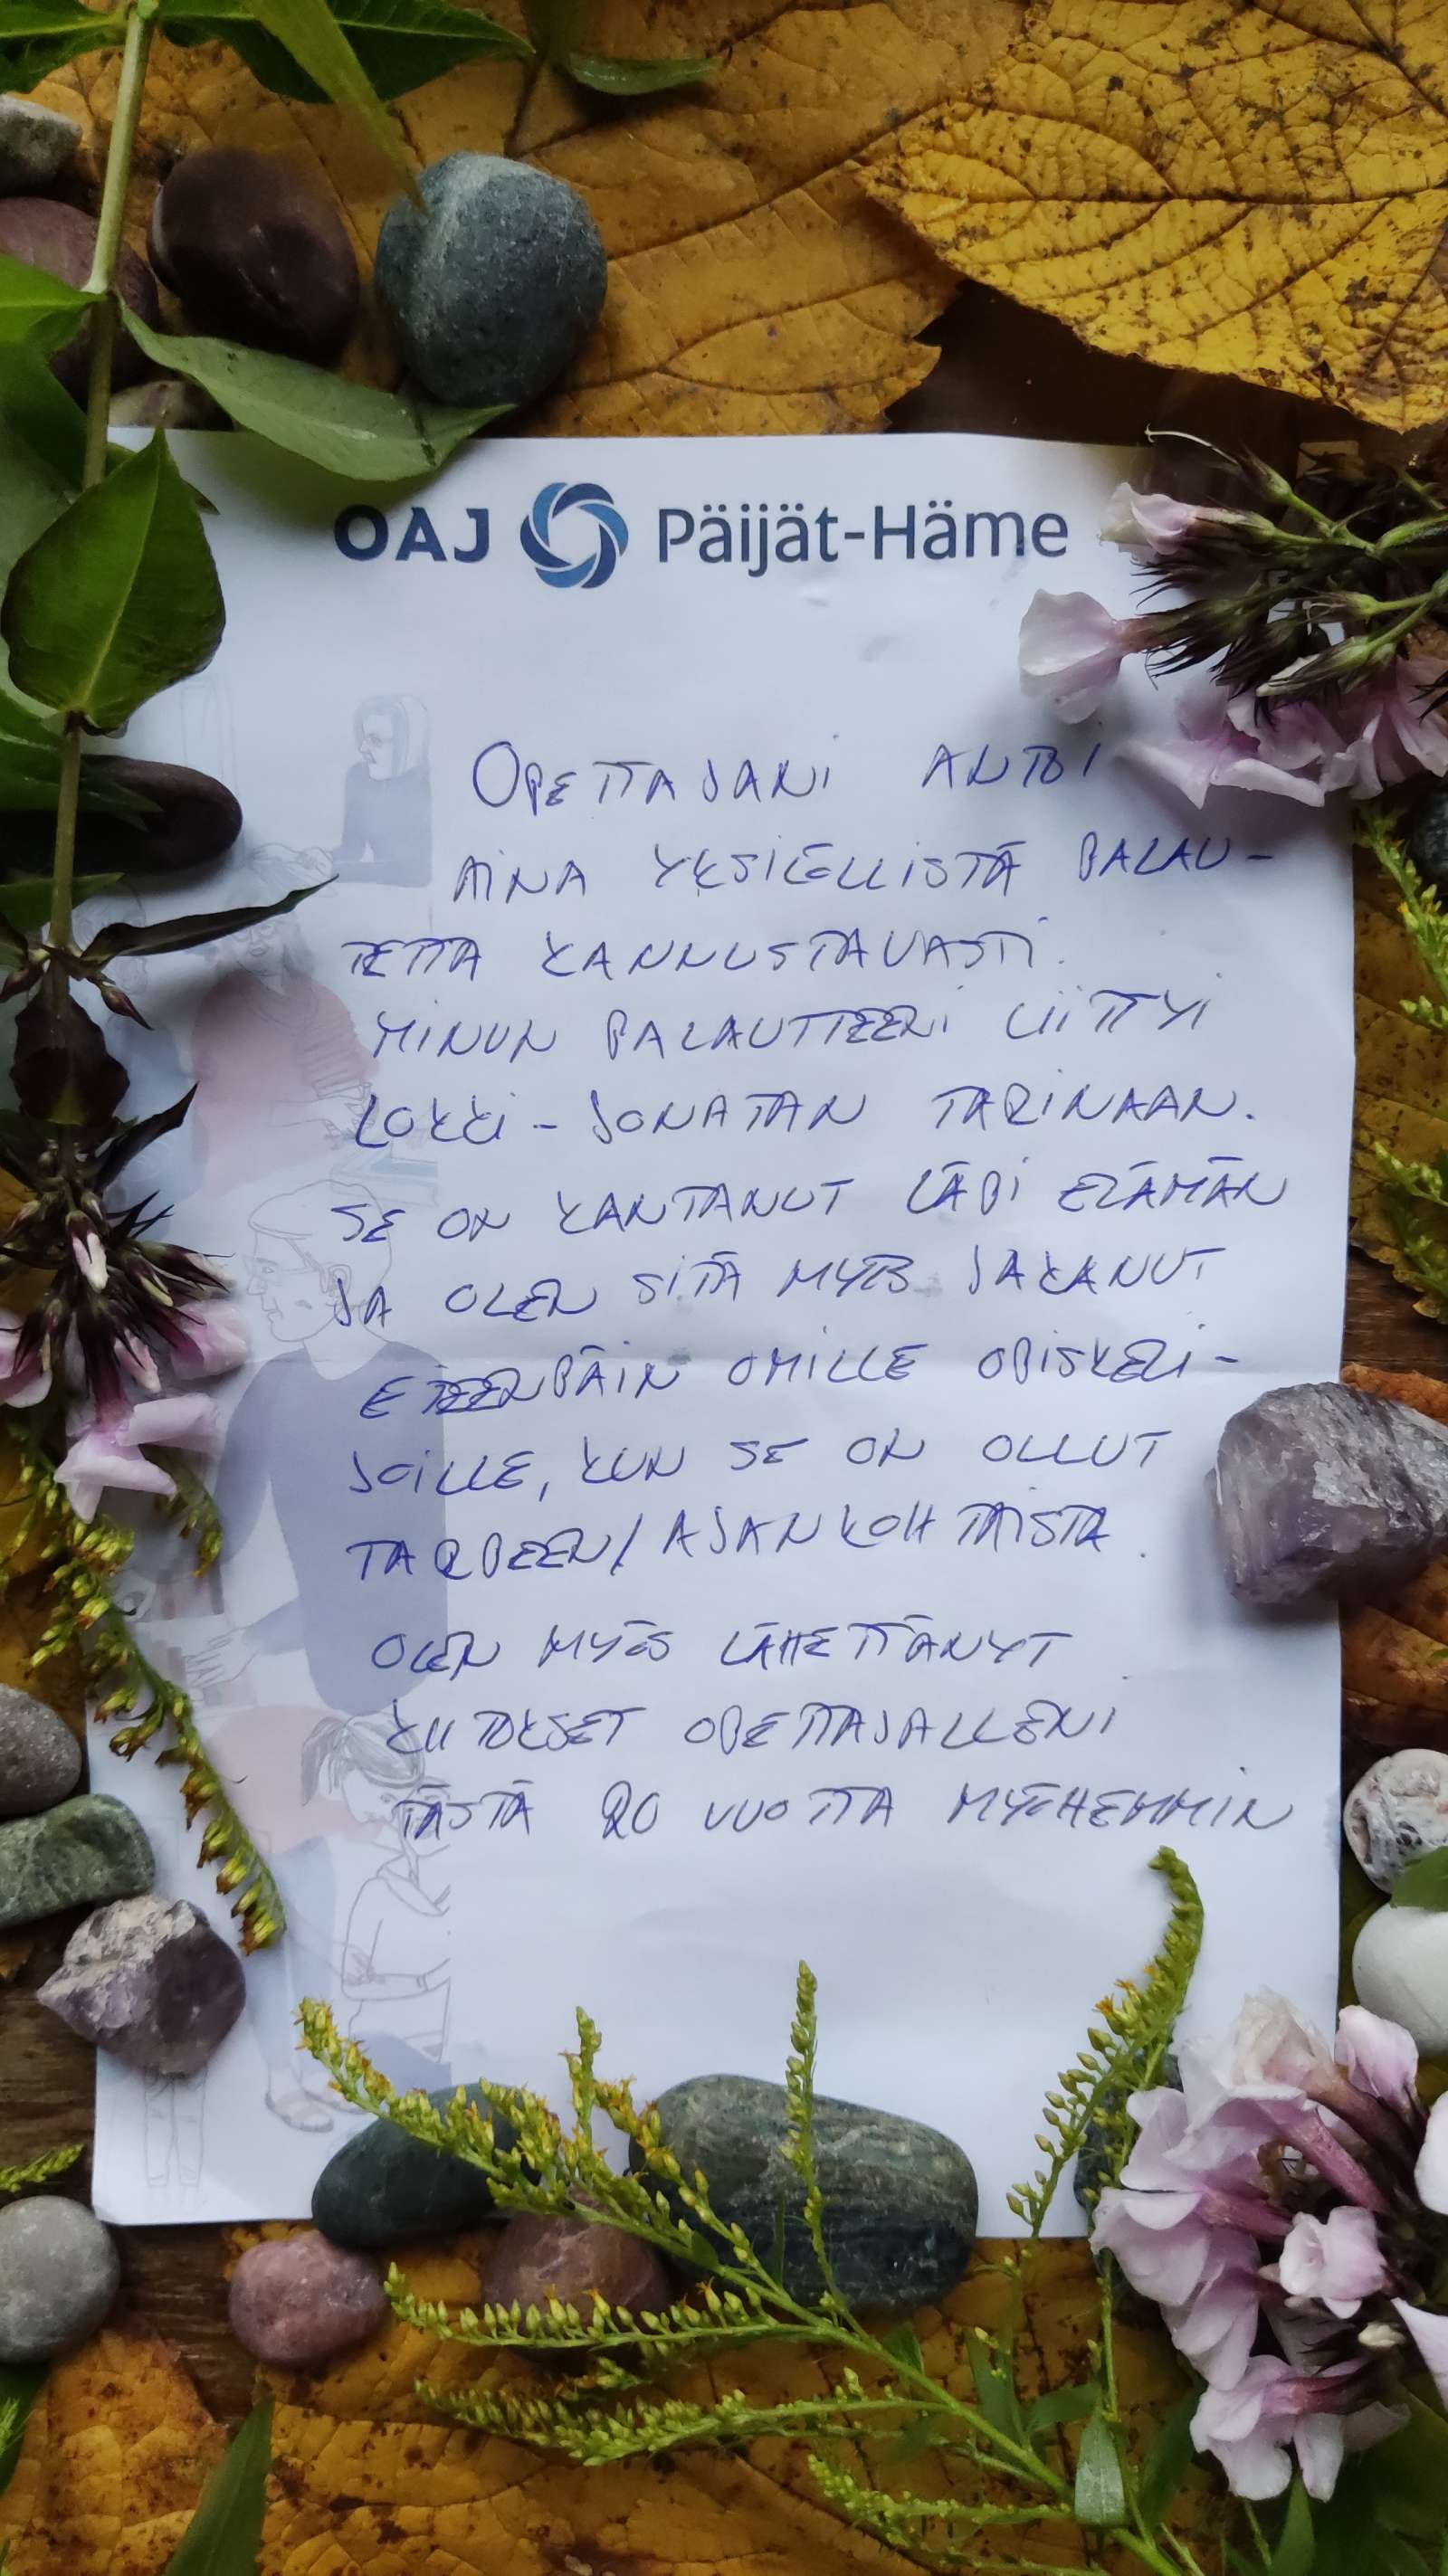 OAJ Päijät-Häme
OPETTAJANI ANTOI
AINA YKSILÖLLISTÄ PALAU-
TETTA KANNUSTAVASTI.
MINUN PALAUTTEENI LIITTYI
LOKKI-JONATAN TARINAAN.
SE ON KANTANUT LÄPI ELÄMÄN
JA OLEN SITÄ MYÖS JAKANUT
ETEENPÄIN OMILLE OPISKELI-
JOILLE, KUN SE ON OLLUT
TARPEEN/AJANKOHTAISTA.
OLEN MYÖS LÄHETTÄNYT
KIITOKSET OPETTAJALLENI
TÄSTÄ 20 VUOTTA MYÖHEMMIN